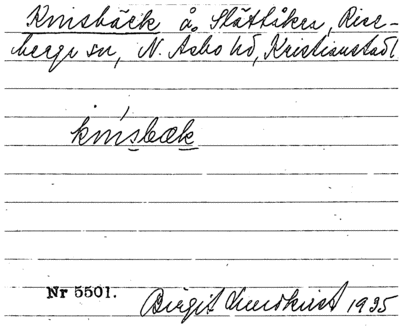 Knisbäck å. Slättåkra, Rise-
berga sn, N. Åsbo hd, Kristianstad l
knisbæk
Nr 5501.
Birgit Lundkvist 1935